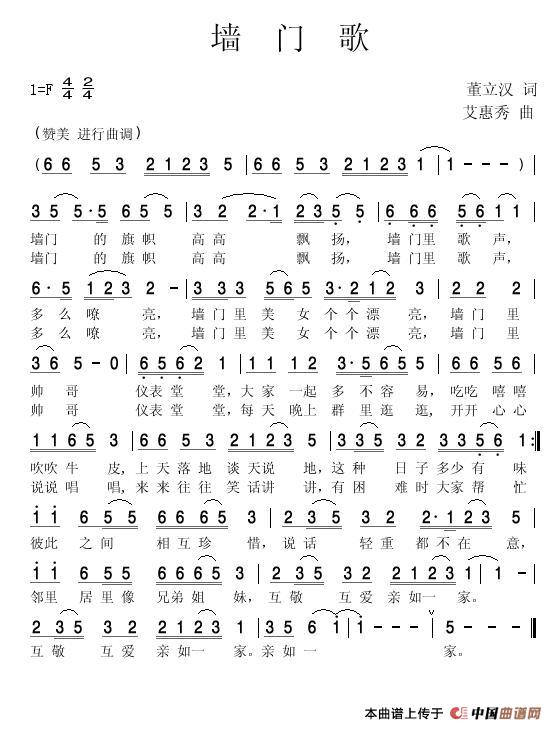 墙 门 歌
1=F 4/4 2/4
董立汉 词
艾惠秀 曲
(赞美 进行曲调)
(6 6 5 3 2 1 2 3 5 | 6 6 5 3 2 1 2 3 1 | 1 - - - ) |
3 5 5·5 6 5 | 3 2 2·1 | 2 3 5 5 - | 6 6 6 5 6 1 1 |
墙门 的 旗 帜 高 高 飘 扬， 墙 门里 歌 声，
墙门 的 旗 帜 高 高 飘 扬， 墙 门里 歌 声，
6·5 1 2 3 2 - | 3 3 3 5 6 5 3·2 1 2 | 2 2 2
多 么 嘹 亮， 墙 门 里 美 女 个 个 漂 亮， 墙 门 里
多 么 嘹 亮， 墙 门 里 美 女 个 个 漂 亮， 墙 门 里
3 6 5 - 0 | 6 5 6 2 1 | 1 1 1 2 3·5 6 5 5 | 6 6 5 6
帅 哥 仪表 堂 堂，大 家 一起 多 不 容 易，吃吃 嘻嘻
帅 哥 仪表 堂 堂，每 天 晚上 群 里 逛 逛，开开 心心
1 1 6 5 3 | 5 5 6 1 6 5 6 5 | 3 3 5 2 3 2 3 3 5 6 1 :‖
吹吹 牛 皮，上 天 落 地 谈 天说 地，这 种 日 子 多少 有 味
说说 唱 唱，来 来 往 往 笑 话讲 讲，有 困 难 时 大家 帮 忙
1 1 6 5 5 | 6 6 6 5 | 2 3 5 3 2 | 2·1 2 3 5 |
彼此 之 间 相 互 珍 惜，说 话 轻 重 都 不 在 意，
1 1 6 5 5 | 6 6 5 6 3 | 2 3 5 3 2 3 1 2 3 6 1 | 1 - - |
邻里 居 里像 兄弟 姐 妹，互 敬 互 爱 亲 如一 家。
2 3 5 3 2 3 1 2 3 5 | 5 - - | 3 3 5 6 1 | 1 - - - | 5 - - | 5 - - - ‖
互 敬 互 爱 亲 如一 家。亲 如一 家。
本曲谱上传于 中国曲谱网